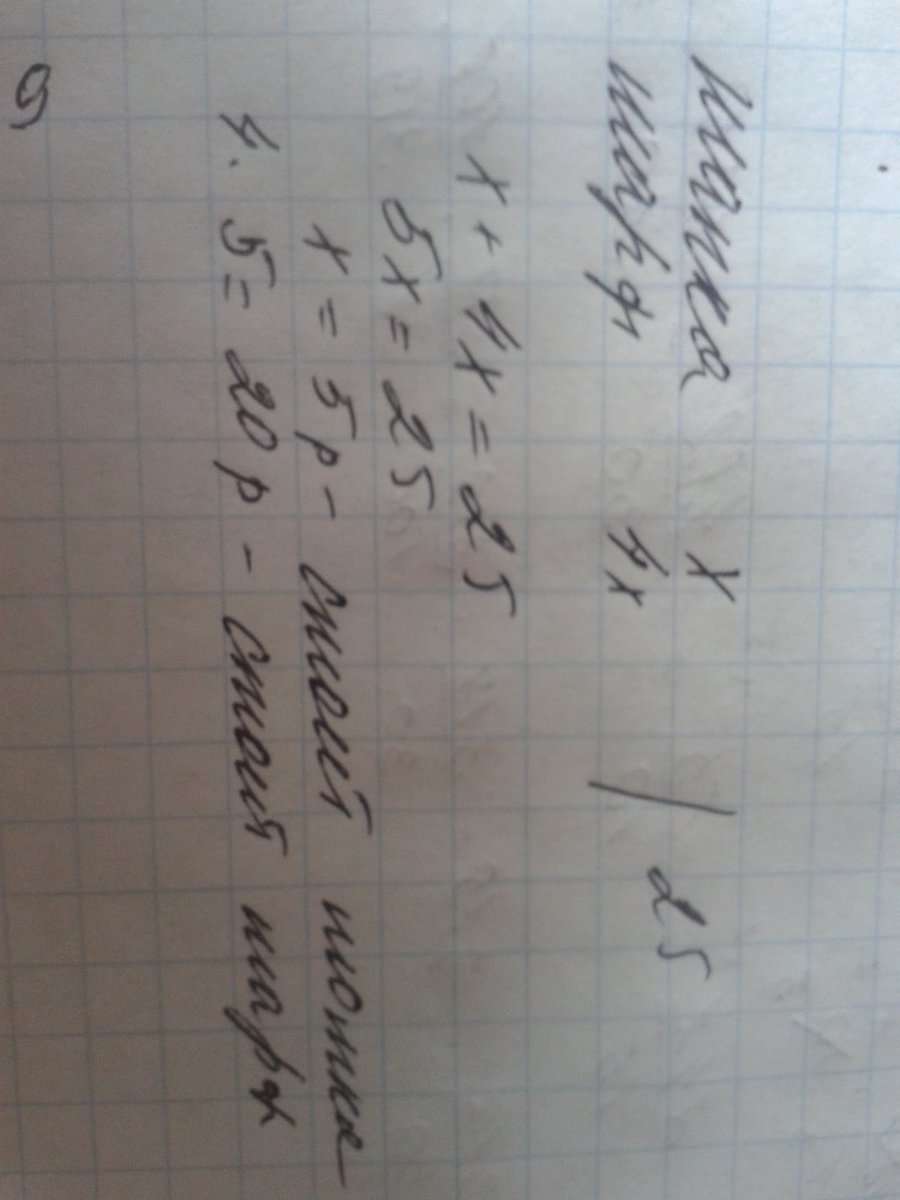 шапка x
шарф 4x / 25
x + 4x = 25
5x = 25
x = 5 р - стоит шапка
4. 5 = 20 р - стоит шарф